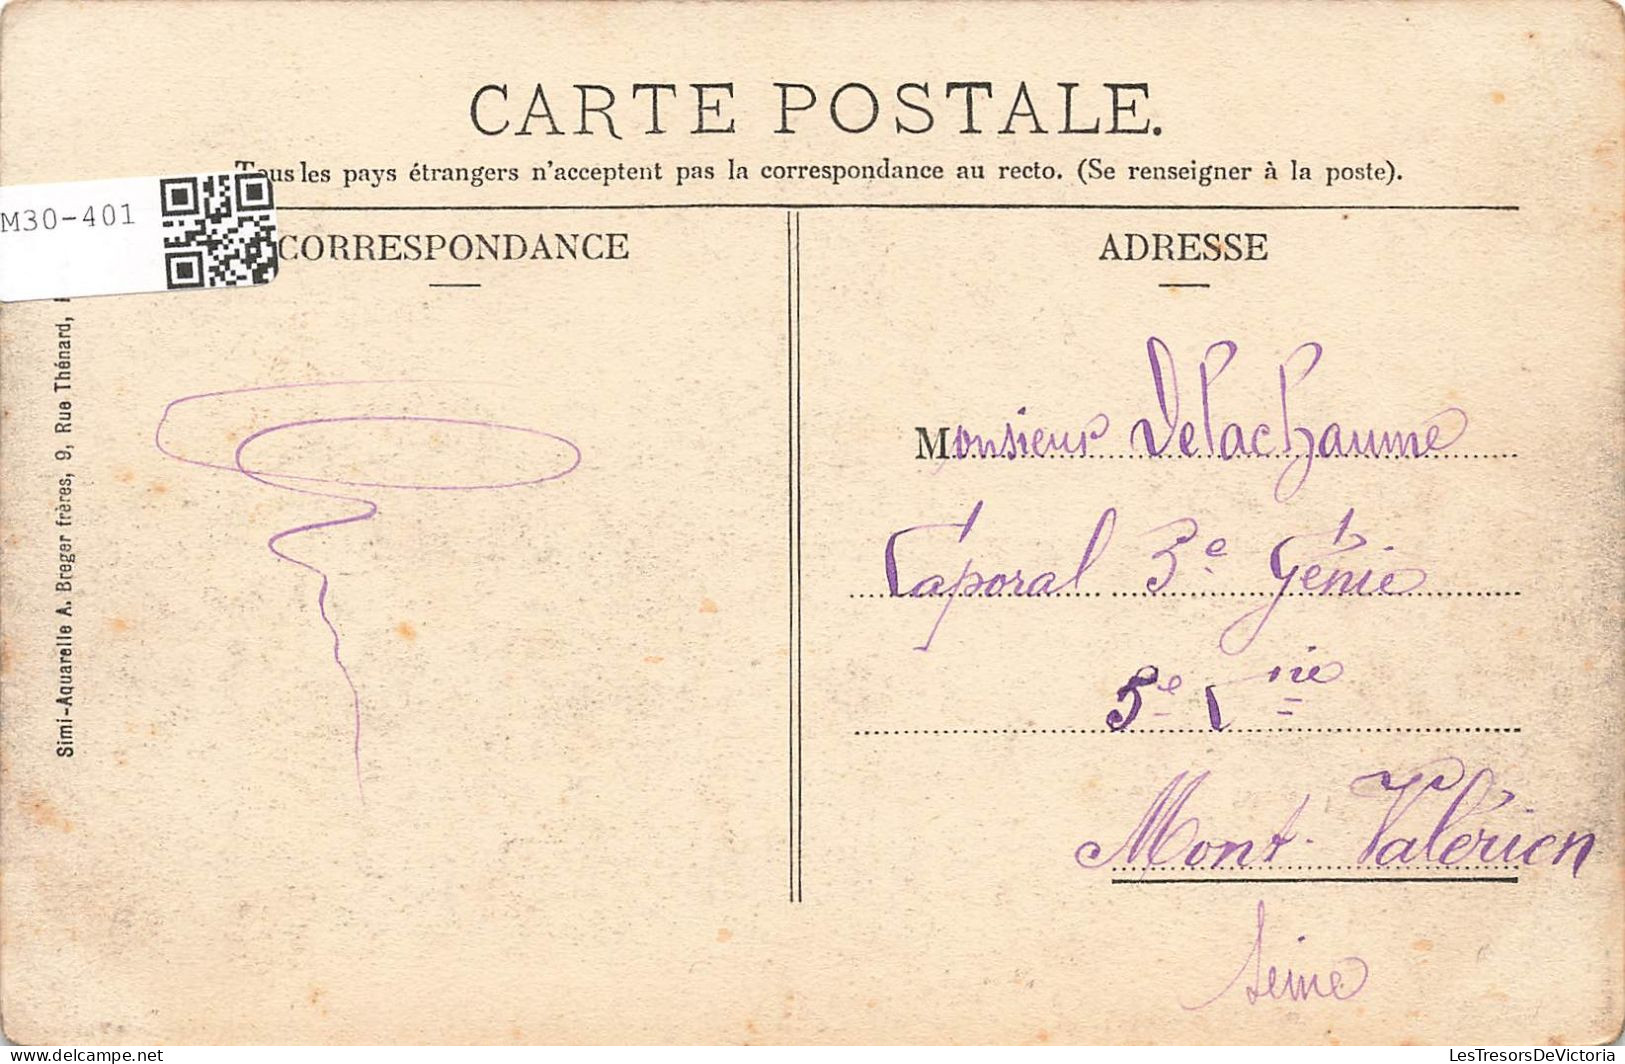 CARTE POSTALE.
Tous les pays étrangers n'acceptent pas la correspondance au recto. (Se renseigner à la poste).
M30-401
CORRESPONDANCE
ADRESSE
Simi-Aquarelle A. Breger frères, 9, Rue Thénard,
Monsieur Delachaume
Caporal 3e Génie
5e Cnie
Mont-Valérien
Seine
delcampe.net
LesTresorsDeVictoria